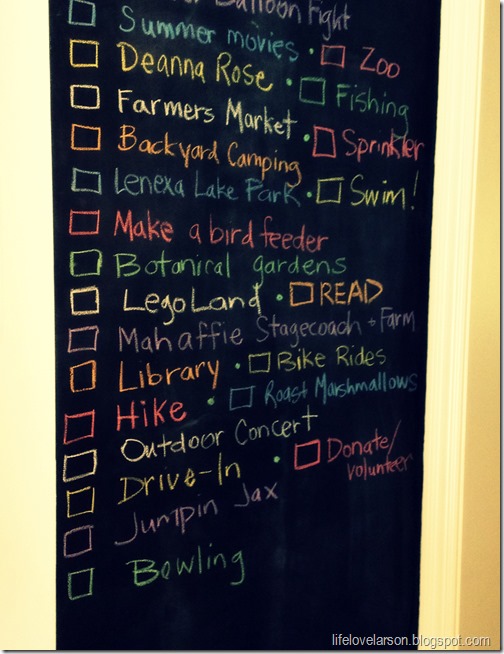 Balloon Fight
Summer movies • Zoo
Deanna Rose • Fishing
Farmers Market • Sprinkler
Backyard Camping
Lenexa Lake Park • Swim!
Make a bird feeder
Botanical gardens
LegoLand • READ
Mahaffie Stagecoach + Farm
Library • Bike Rides
Hike • Roast Marshmallows
Outdoor Concert
Drive-In • Donate/
volunteer
Jumpin Jax
Bowling
lifelovelarson.blogspot.com